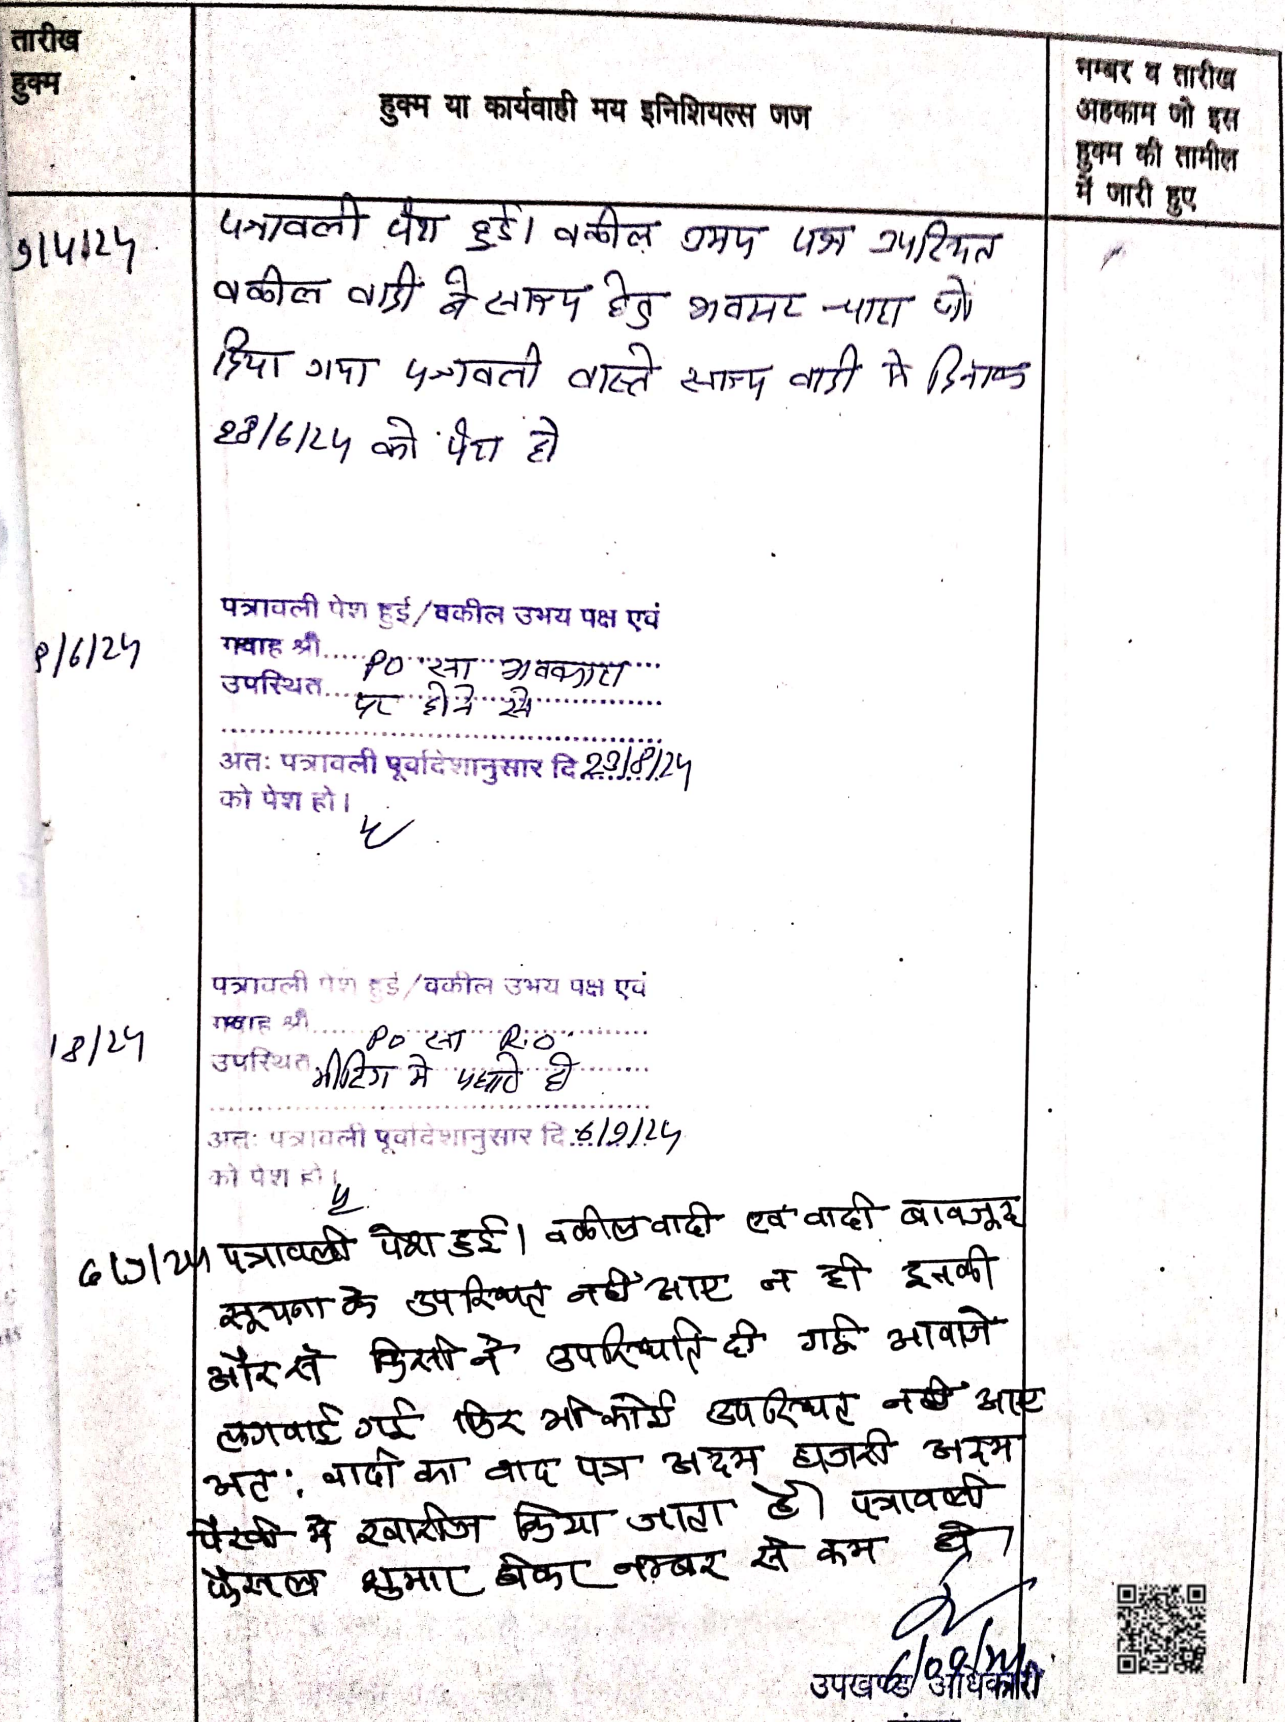 तारीख
हुक्म
हुक्म या कार्यवाही मय इनिशियल्स जज
नम्बर व तारीख
अहकाम जो इस
हुक्म की तामील
में जारी हुए
9/4/24
पत्रावली पेश हुई। वकील उभय पक्ष उपस्थित
वकील वादी ने साक्ष्य हेतु अवसर चाहा जो
दिया गया पत्रावली वास्ते साक्ष्य वादी मे दिनांक
28/6/24 को पेश हो
8/6/24
पत्रावली पेश हुई/वकील उभय पक्ष एवं
गवाह श्री..... PO सा अवकाश
उपस्थित..... पर होने से
अतः पत्रावली पूर्वादेशानुसार दि 23/8/24
को पेश हो।
18/24
पत्रावली पेश हुई/वकील उभय पक्ष एवं
गवाह श्री..... PO सा R.O.
उपस्थित मीटिंग मे पधारे है
अतः पत्रावली पूर्वादेशानुसार दि 6/9/24
को पेश हो।
6/9/24 पत्रावली पेश हुई। वकील वादी एवं वादी बावजूद
सूचना के उपस्थित नहीं आए न ही इनकी
और से किसी ने उपस्थिति दी गई आवाजे
लगवाई गई फिर भी कोई उपस्थित नहीं आए
अतः वादी का वाद पत्र अदम हाजरी अदम
पैरवी मे खारीज किया जाता है। पत्रावली
फैसल शुमार होकर नम्बर से कम हो।
6/09/24
उपखण्ड अधिकारी